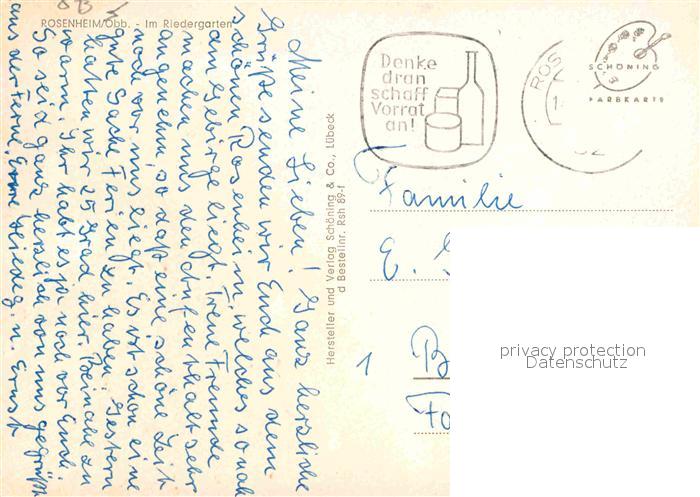 ROSENHEIM/Obb. - Im Riedergarten
Meine Lieben! Ganz herzliche
Grüße senden wir Euch aus dem
schönen Rosenheim, welches so nah
am Gebirge liegt. Treue Freunde
machen uns den Aufenthalt sehr
angenehm, so daß eine schöne Zeit
noch vor uns liegt. Es ist schon eine
gute Sache Ferien zu haben. Gestern
hatten wir 25 Grad hier. Beinahe zu
warm. Ihr habt es ja noch vor Euch.
So seid ganz herzlich von uns gegrüßt
aus der Ferne, Eure u. Ernst
Hersteller und Verlag Schöning & Co., Lübeck
d Bestellnr. Rsh 89-f
Denke
dran
schaff
Vorrat
an!
ROS
SCHÖNING
FARBKARTE
Familie
E.
1
B
privacy protection
Datenschutz